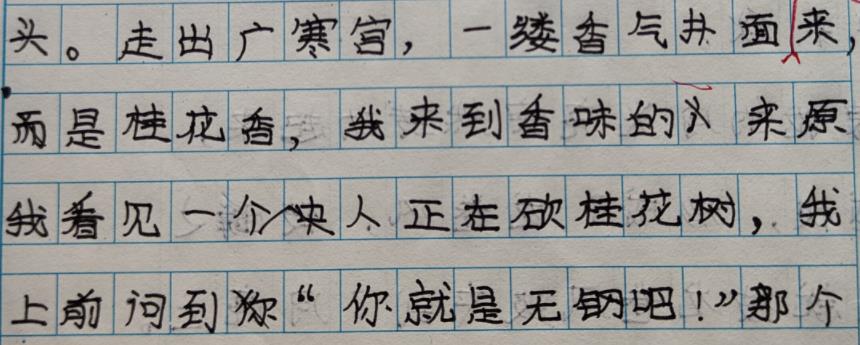 头。走出广寒宫，一缕香气扑面来，
而是桂花香，我来到香味的来原
我看见一个人正在砍桂花树，我
上前问到你“你就是无钢吧！”那个